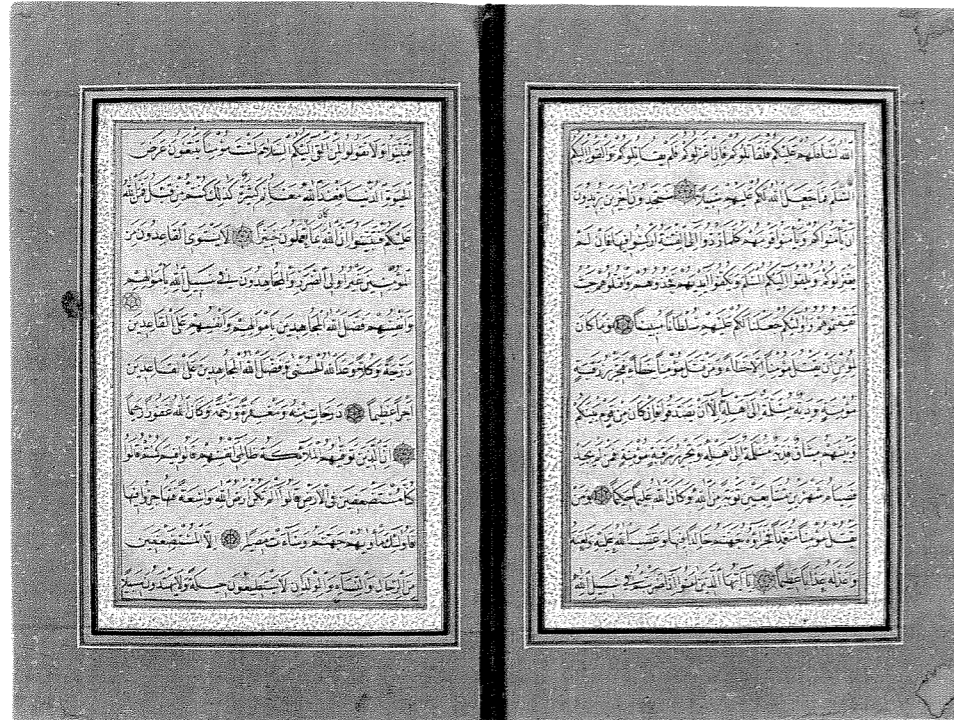 الله لسلطهم عليكم فلقاتلوكم فان اعتزلوكم فلم يقاتلوكم والقوا اليكم
السلم فما جعل الله لكم عليهم سبيلا ستجدون اخرين يريدون
ان يامنوكم ويامنوا قومهم كلما ردوا الى الفتنة اركسوا فيها فان لم
يعتزلوكم ويلقوا اليكم السلم ويكفوا ايديهم فخذوهم واقتلوهم حيث
ثقفتموهم واولئكم جعلنا لكم عليهم سلطانا مبينا وما كان
لمؤمن ان يقتل مؤمنا الا خطاء ومن قتل مؤمنا خطاء فتحرير رقبة
مؤمنة ودية مسلمة الى اهله الا ان يصدقوا فان كان من قوم بينكم
وبينهم ميثاق فدية مسلمة الى اهله وتحرير رقبة مؤمنة فمن لم يجد
فصيام شهرين متتابعين توبة من الله وكان الله عليما حكيما ومن
يقتل مؤمنا متعمدا فجزاؤه جهنم خالدا فيها وغضب الله عليه ولعنه
واعد له عذابا عظيما يا ايها الذين امنوا اذا ضربتم فى سبيل الله
فتبينوا ولا تقولوا لمن القى اليكم السلام لست مؤمنا تبتغون عرض
الحيوة الدنيا فعند الله مغانم كثيرة كذلك كنتم من قبل فمن الله
عليكم فتبينوا ان الله كان بما تعملون خبيرا لا يستوى القاعدون من
المؤمنين غير اولى الضرر والمجاهدون فى سبيل الله باموالهم
وانفسهم فضل الله المجاهدين باموالهم وانفسهم على القاعدين
درجة وكلا وعد الله الحسنى وفضل الله المجاهدين على القاعدين
اجرا عظيما درجات منه ومغفرة ورحمة وكان الله غفورا رحيما
ان الذين توفيهم الملائكة ظالمى انفسهم قالوا فيم كنتم قالوا
كنا مستضعفين فى الارض قالوا الم تكن ارض الله واسعة فتهاجروا فيها
فاولئك ماويهم جهنم وساءت مصيرا الا المستضعفين
من الرجال والنساء والولدان لا يستطيعون حيلة ولا يهتدون سبيلا